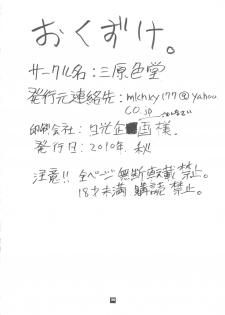 おくずけ。
サークル名:三原色堂
発行元連絡先:mlchxy177@yahoo.
co.jp
印刷会社: 日光企画様.
発行日:2010年.秋
注意!!全ページ無断転載禁止。
18才未満.購読禁止。